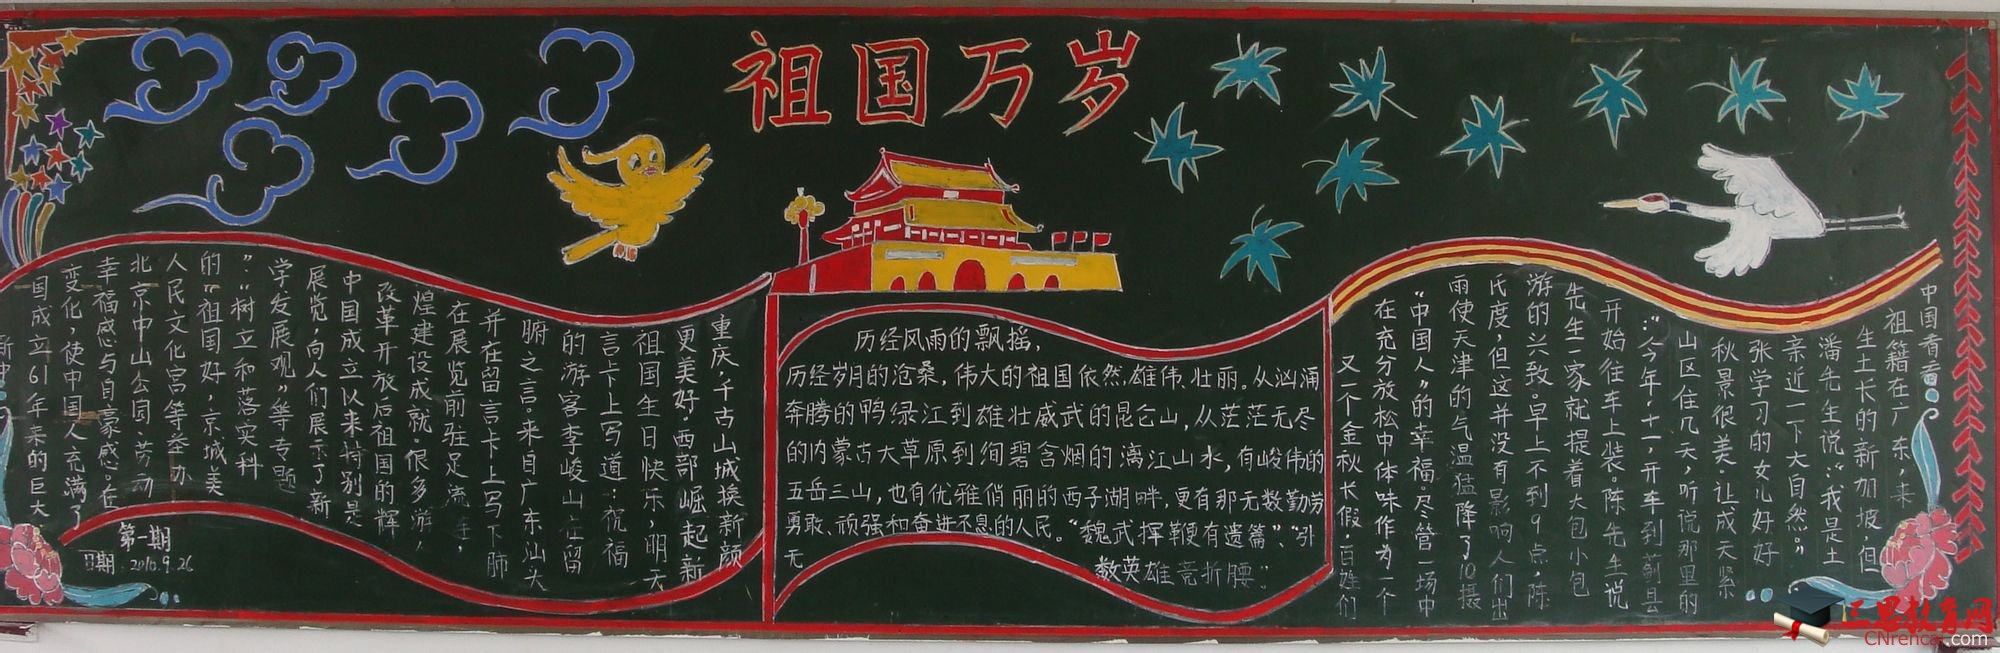 祖国万岁
新中
国成立61年来的巨大
变化，使中国人充满了
幸福感与自豪感。在
北京中山公园、劳动
人民文化宫等举办
的“祖国好，京城美
”：“树立和落实科
学发展观”等专题
展览，向人们展示了新
中国成立以来特别是
改革开放后祖国的辉
煌建设成就。很多游
在展览前驻足流连，
并在留言卡上写下肺
腑之言。来自广东汕大
的游客李峻山在留
言卡上写道：祝福
祖国生日快乐，明天
更美好。西部崛起新
重庆，千古山城换新颜
第一期
日期：2010.9.26
历经风雨的飘摇，
历经岁月的沧桑，伟大的祖国依然雄伟、壮丽。从汹涌
奔腾的鸭绿江到雄壮威武的昆仑山，从茫茫无尽
的内蒙古大草原到绚碧含烟的漓江山水，有峻伟的
五岳三山，也有优雅俏丽的西子湖畔，更有那无数勤劳
勇敢、顽强和奋进不息的人民。“魏武挥鞭有遗篇”、“引
无
数英雄竞折腰”
又一个金秋长假，百姓们
在充分放松中体味作为一个
“中国人”的幸福。尽管一场中
雨使天津的气温猛降了10摄
氏度，但这并没有影响人们出
游的兴致。早上不到9点，陈
先生一家就提着大包小包
开始往车上装。陈先生说
“：今年十一，开车到蓟县
山区住几天，听说那里的
秋景很美，让成天紧
张学习的女儿好好
亲近一下大自然。”
潘先生说：“我是土
生土长的新加坡，但
祖籍在广东，来
中国看看
三思教育网
CNrencai.com